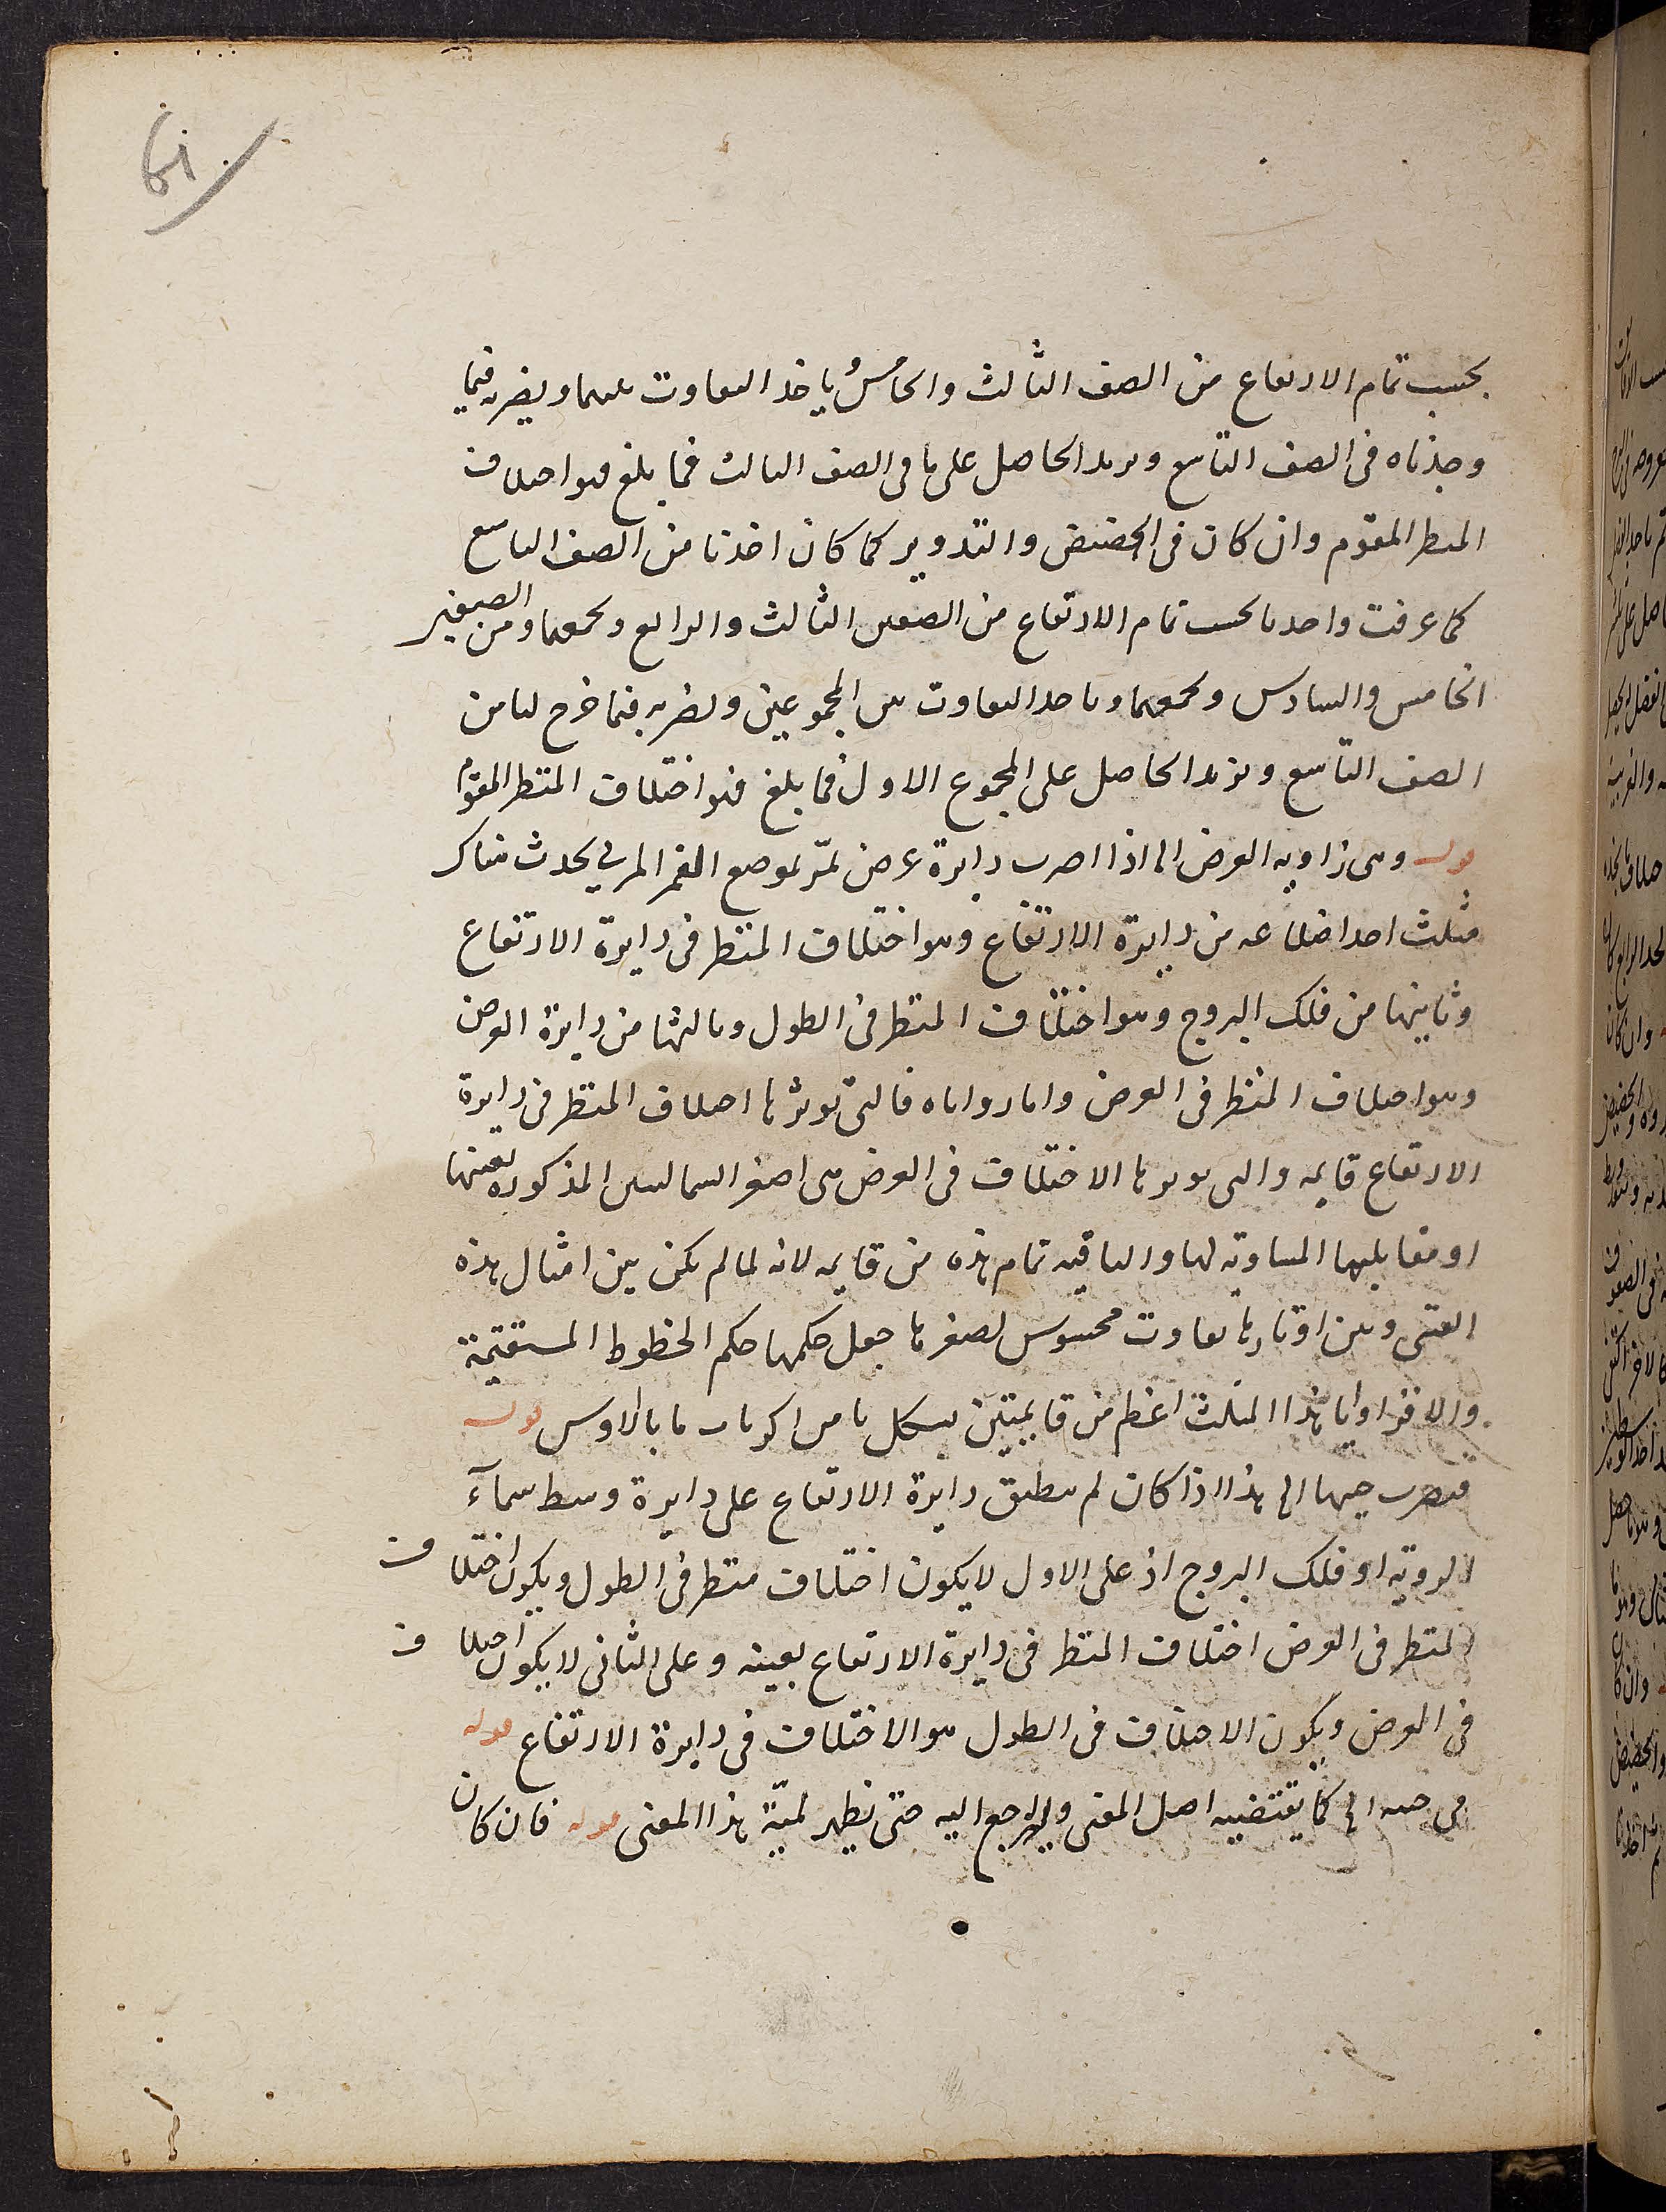 61
بحسب تمام الارتفاع من الصف الثالث والخامس ياخذ التفاوت بينهما ويضربه فيما
وجدناه فى الصف التاسع ونزيد الحاصل على ما فى الصف الثالث فما بلغ فهو اختلاف
المنظر المقوم وان كان فى الحضيض والتدوير كما كان اخذنا من الصف التاسع
كما عرفت واخذنا بحسب تمام الارتفاع من الصفين الثالث والرابع ونجمعهما ومن الصفين
الخامس والسادس ونجمعهما وناخذ التفاوت بين المجموعين ونضربه فيما خرج لنا من
الصف التاسع ونزيد الحاصل على المجموع الاول فما بلغ فهو اختلاف المنظر المقوم
قوله وهى زاوية العرض الى اذا اخرجت دايرة عرض تمرّ بموضع القمر المرئي يحدث هناك
مثلث احد اضلاعه من دايرة الارتفاع وهو اختلاف المنظر فى دايرة الارتفاع
وثانيها من فلك البروج وهو اختلاف المنظر فى الطول وثالثها من دايرة العرض
وهو اختلاف المنظر فى العرض واما زواياه فالتى يوترها اختلاف المنظر فى دايرة
الارتفاع قايمه والتى يوترها الاختلاف فى العرض هى اصغر المذكورة بعينها
او مقابلتها المساويه لها والباقيه تمام هذه من قايمه لانه لما لم يكن بين امثال هذه
القسى وبين اوتارها تفاوت محسوس لصغرها جعل حكمها حكم الخطوط المستقيمة
والا فزوايا هذا المثلث اعظم من قايمتين بشكل يا من اكر مانالاوس قوله
فنضرب جيبها الى هذا اذا كان لم ينطبق دايرة الارتفاع على دايرة وسط سمآء
الروية او فلك البروج اذ على الاول لا يكون اختلاف منظر فى الطول ويكون اختلاف
المنظر فى العرض اختلاف المنظر فى دايرة الارتفاع بعينه وعلى الثانى لا يكون اختلاف
فى العرض ويكون الاختلاف فى الطول هو الاختلاف فى دايرة الارتفاع قوله
فى الى كما يقتضيه اصل المغنى وليرجع اليه حتى يظهر لميّة هذا المعنى قوله فان كان